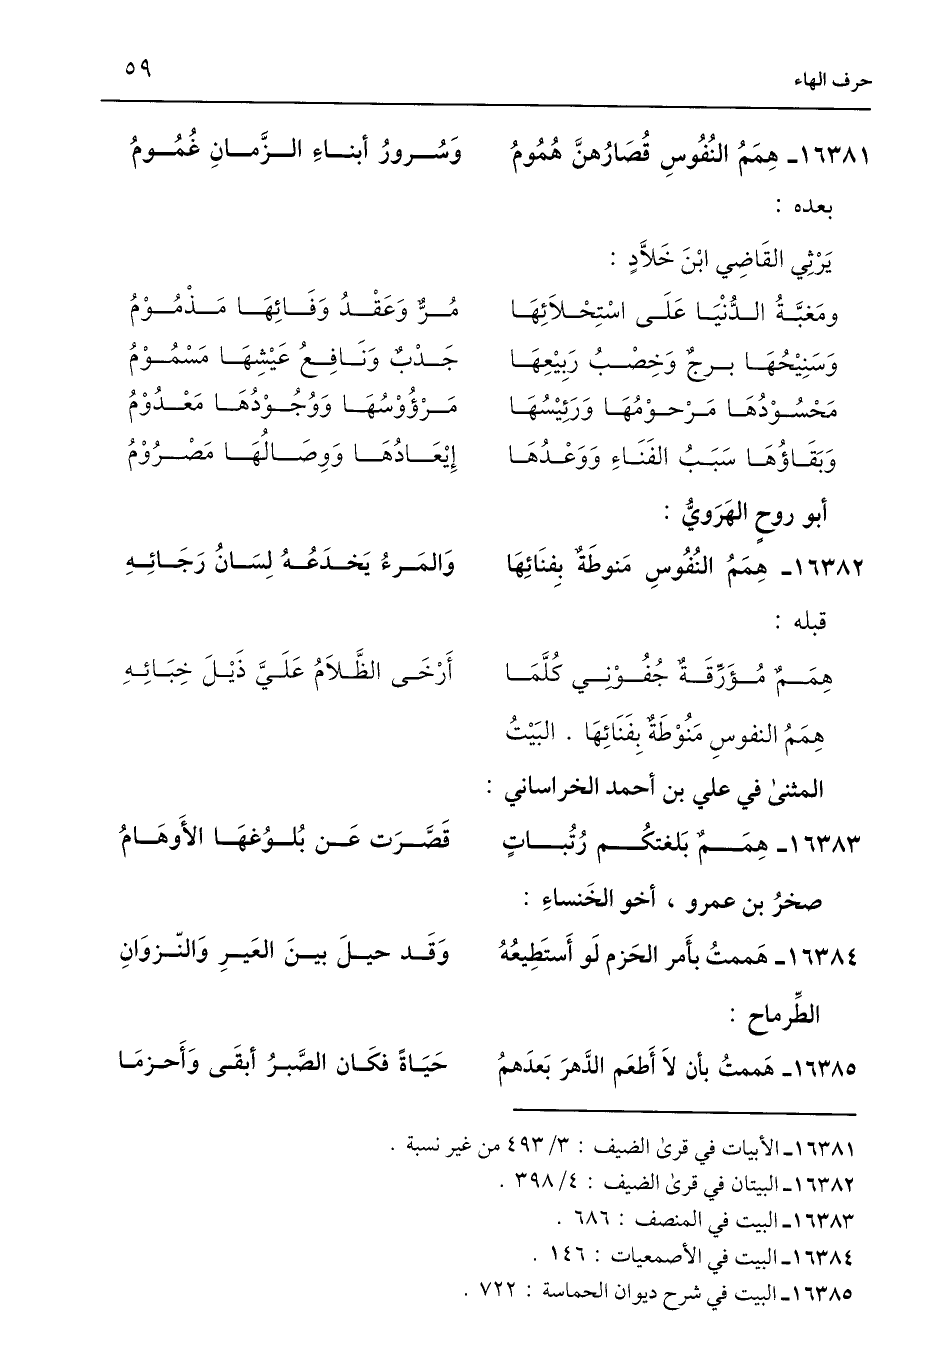 حرف الهاء ٥٩
١٦٣٨١ـ هِمَمُ النُّفُوسِ قُصَارُهنَّ هُمُومُ وَسُرورُ أبناءِ الزَّمانِ غُمُومُ
بعده :
يَرْثِي القَاضِي ابْنَ خَلاَّدٍ :
ومَغبَّةُ الدُّنْيَا عَلَى اسْتِحْلاَئِهَا مُرٌّ وَعَقْدُ وَفَائِهَا مَذْمُوْمُ
وَسَنِيْحُهَا برحٌ وَخِصْبُ رَبِيْعِهَا جَدْبٌ وَنَافِعُ عَيْشِهَا مَسْمُوْمُ
مَحْسُوْدُهَا مَرْحوْمُهَا وَرَئِيْسُهَا مَرْؤُوْسُهَا وَوُجُوْدُهَا مَعْدُوْمُ
وَبَقَاؤُهَا سَبَبُ الفَنَاءِ وَوَعْدُهَا إِيْعَادُهَا وَوِصَالُهَا مَصْرُوْمُ
أبو روحٍ الهَرَويُّ :
١٦٣٨٢ـ هِمَمُ النُّفُوسِ مَنوطَةٌ بِفنَائِهَا وَالمَرءُ يَخدَعُهُ لِسَانُ رَجَائِهِ
قبله :
هِمَمٌ مُؤَرِّقَةٌ جُفُوْنِي كُلَّمَا أَرْخَى الظَّلاَمُ عَلَيَّ ذَيْلَ خِبَائِهِ
هِمَمُ النفوسِ مَنُوْطَةٌ بِفَنَائِهَا . البَيْتُ
المثنىٰ في علي بن أحمد الخراساني :
١٦٣٨٣ـ هِمَمٌ بَلغتكُم رُتُبَاتٍ قَصَّرَت عَن بُلوُغهَا الأَوهَامُ
صخرُ بن عمرو ، أخو الخَنساءِ :
١٦٣٨٤ـ هَممتُ بأَمر الحَزم لَو أَستَطِيعُهُ وَقَد حيلَ بينَ العَيرِ وَالنّزوَانِ
الطِّرماحِ :
١٦٣٨٥ـ هَممتُ بأن لاَ أَطعَم الدَّهرَ بَعدَهمُ حَيَاةً فكَان الصَّبرُ أبقَى وَأَحزمَا
١٦٣٨١ـ الأبيات في قرىٰ الضيف : ٣/ ٤٩٣ من غير نسبة .
١٦٣٨٢ـ البيتان في قرىٰ الضيف : ٤/ ٣٩٨ .
١٦٣٨٣ـ البيت في المنصف : ٦٨٦ .
١٦٣٨٤ـ البيت في الأصمعيات : ١٤٦ .
١٦٣٨٥ـ البيت في شرح ديوان الحماسة : ٧٢٢ .